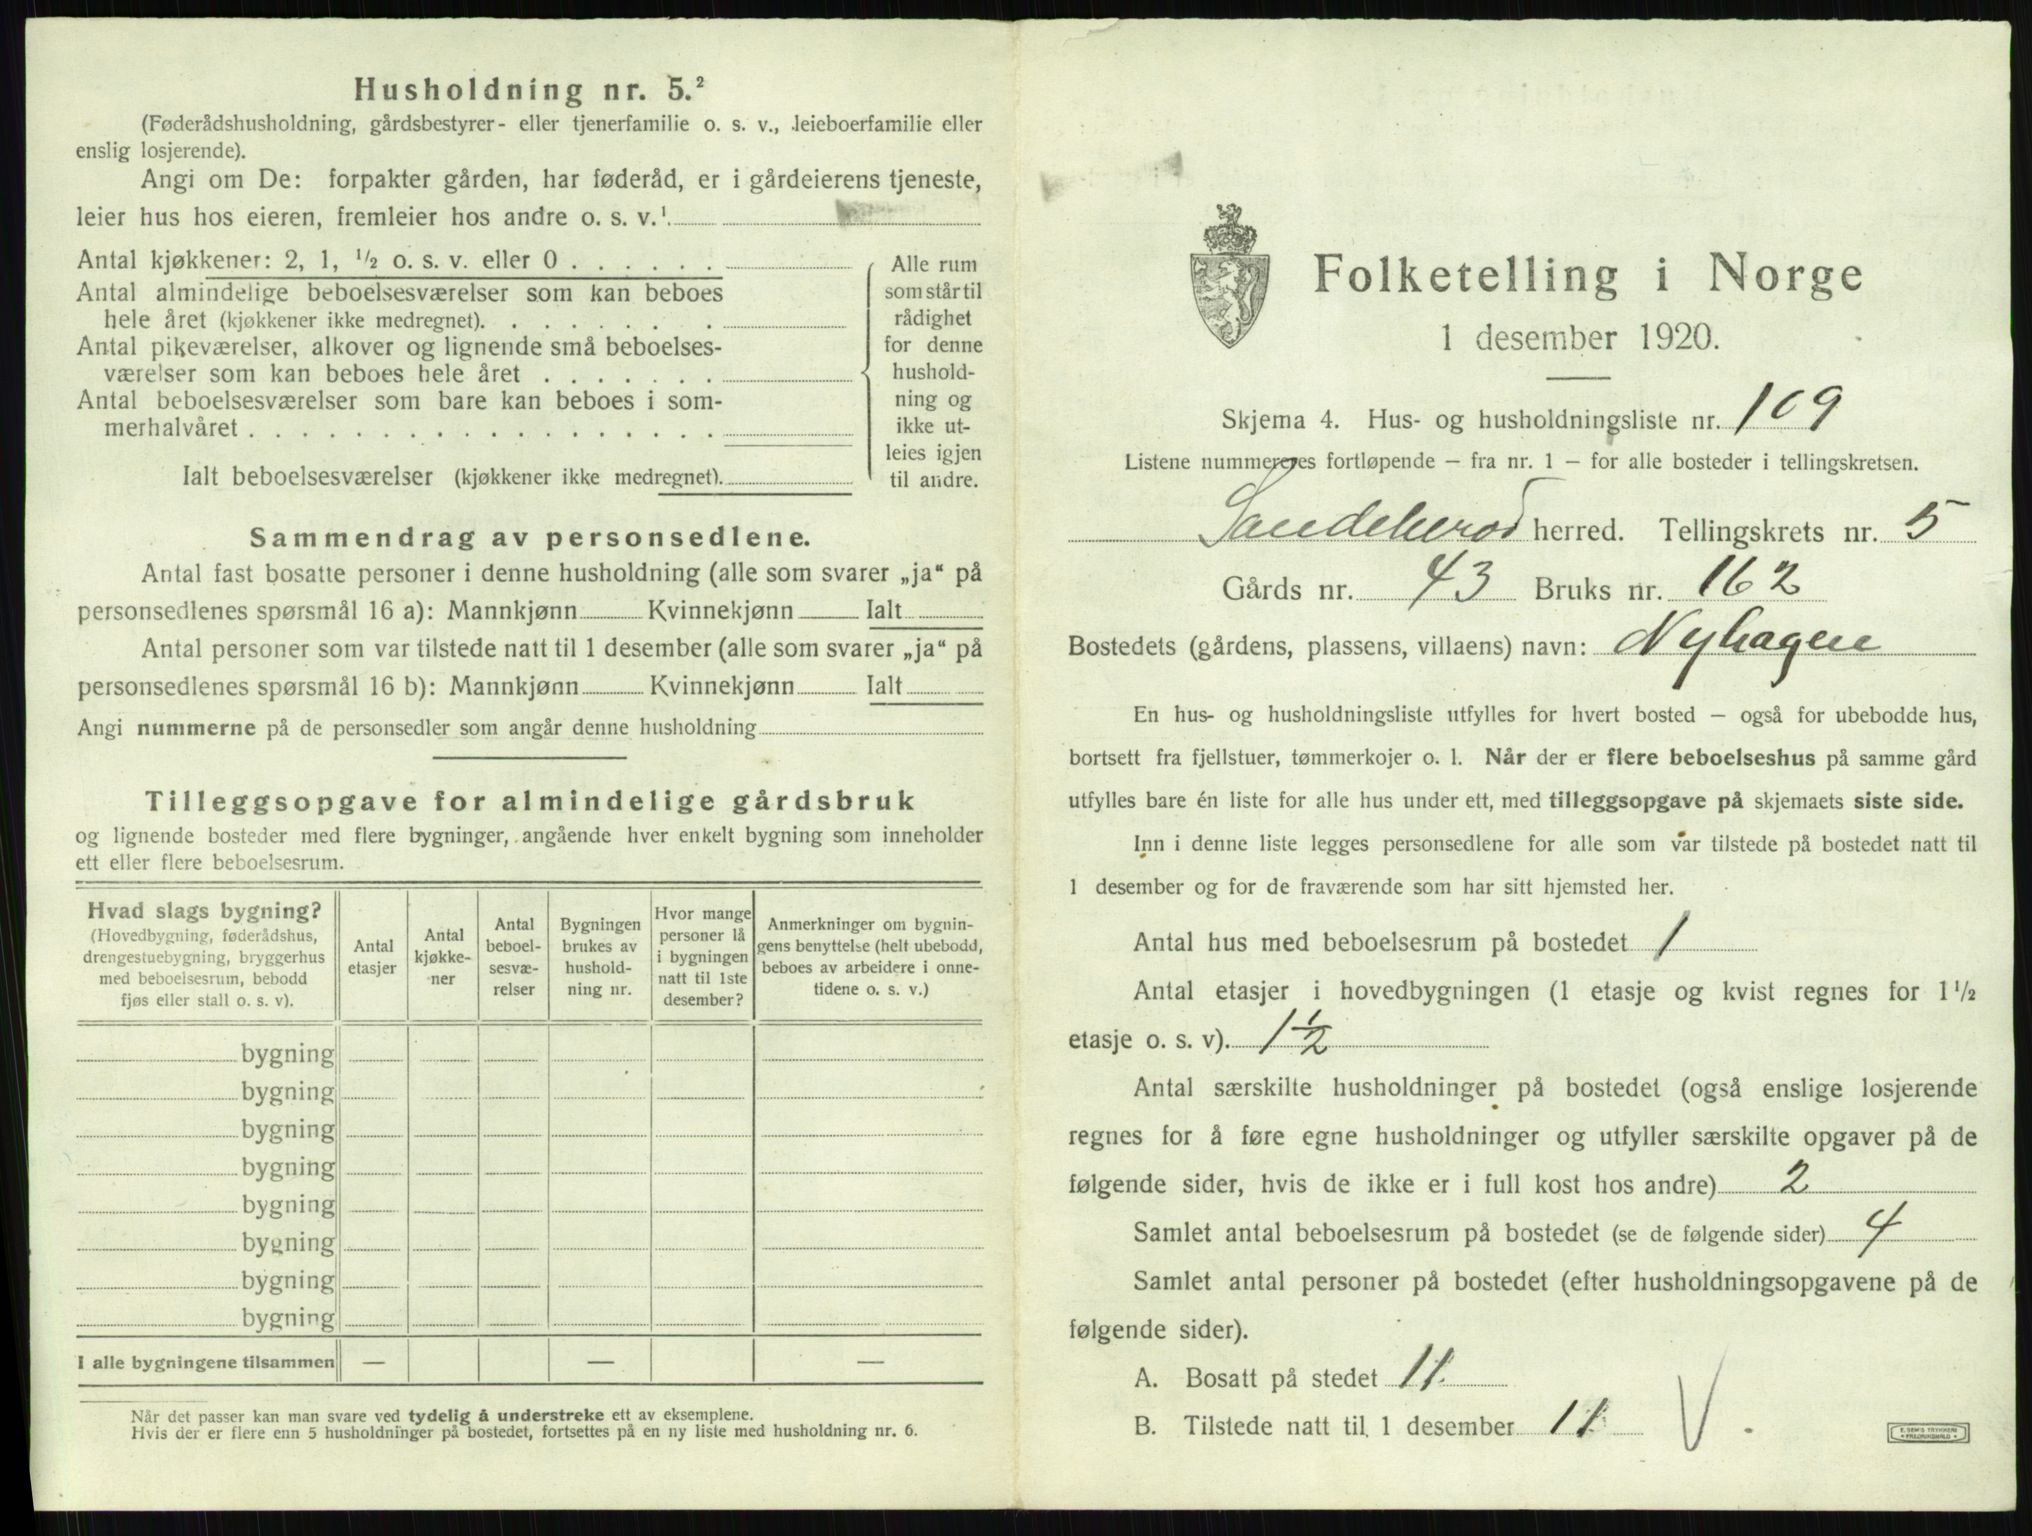 Husholdning nr. 5.²
(Føderådshusholdning, gårdsbestyrer- eller tjenerfamilie o. s. v., leieboerfamilie eller
enslig losjerende).
Angi om De: forpakter gården, har føderåd, er i gårdeierens tjeneste,
leier hus hos eieren, fremleier hos andre o. s. v.¹
Antal kjøkkener: 2, 1, ½ o. s. v. eller 0 . . . . . .
Antal almindelige beboelsesværelser som kan beboes
hele året (kjøkkener ikke medregnet). . . . . . . .
Antal pikeværelser, alkover og lignende små beboelses-
værelser som kan beboes hele året . . . . . . .
Antal beboelsesværelser som bare kan beboes i som-
merhalvåret . . . . . . . . . . . . . . . . . .
Ialt beboelsesværelser (kjøkkener ikke medregnet).
Alle rum
som står til
rådighet
for denne
hushold-
ning og
ikke ut-
leies igjen
til andre.
Sammendrag av personsedlene.
Antal fast bosatte personer i denne husholdning (alle som svarer „ja“ på
personsedlenes spørsmål 16 a): Mannkjønn Kvinnekjønn Ialt
Antal personer som var tilstede natt til 1 desember (alle som svarer „ja“ på
personsedlenes spørsmål 16 b): Mannkjønn Kvinnekjønn Ialt
Angi nummerne på de personsedler som angår denne husholdning
Tilleggsopgave for almindelige gårdsbruk
og lignende bosteder med flere bygninger, angående hver enkelt bygning som inneholder
ett eller flere beboelsesrum.
Hvad slags bygning?
(Hovedbygning, føderådshus,
drengestuebygning, bryggerhus
med beboelsesrum, bebodd
fjøs eller stall o. s. v).
Antal
etasjer
Antal
kjøkke-
ner
Antal
beboel-
sesvæ-
relser
Bygningen
brukes av
hushold-
ning nr.
Hvor mange
personer lå
i bygningen
natt til 1ste
desember?
Anmerkninger om bygnin-
gens benyttelse (helt ubebodd,
beboes av arbeidere i onne-
tidene o. s. v.)
bygning
bygning
bygning
bygning
bygning
bygning
bygning
bygning
I alle bygningene tilsammen — — —
Når det passer kan man svare ved tydelig å understreke ett av eksemplene.
Hvis der er flere enn 5 husholdninger på bostedet, fortsettes på en ny liste med husholdning nr. 6.
Folketelling i Norge
1 desember 1920.
Skjema 4. Hus- og husholdningsliste nr. 109
Listene nummereres fortløpende – fra nr. 1 – for alle bosteder i tellingskretsen.
Sandeherod herred. Tellingskrets nr. 5
Gårds nr. 43 Bruks nr. 162
Bostedets (gårdens, plassens, villaens) navn: Nyhagen
En hus- og husholdningsliste utfylles for hvert bosted – også for ubebodde hus,
bortsett fra fjellstuer, tømmerkojer o. l. Når der er flere beboelseshus på samme gård
utfylles bare én liste for alle hus under ett, med tilleggsopgave på skjemaets siste side.
Inn i denne liste legges personsedlene for alle som var tilstede på bostedet natt til
1 desember og for de fraværende som har sitt hjemsted her.
Antal hus med beboelsesrum på bostedet 1
Antal etasjer i hovedbygningen (1 etasje og kvist regnes for 1½
etasje o. s. v). 1½
Antal særskilte husholdninger på bostedet (også enslige losjerende
regnes for å føre egne husholdninger og utfyller særskilte opgaver på de
følgende sider, hvis de ikke er i full kost hos andre) 2
Samlet antal beboelsesrum på bostedet (se de følgende sider) 4
Samlet antal personer på bostedet (efter husholdningsopgavene på de
følgende sider).
A. Bosatt på stedet 11.
B. Tilstede natt til 1 desember 11 V.
E. SEMS TRYKKERI
• FREDRIKSHALD •